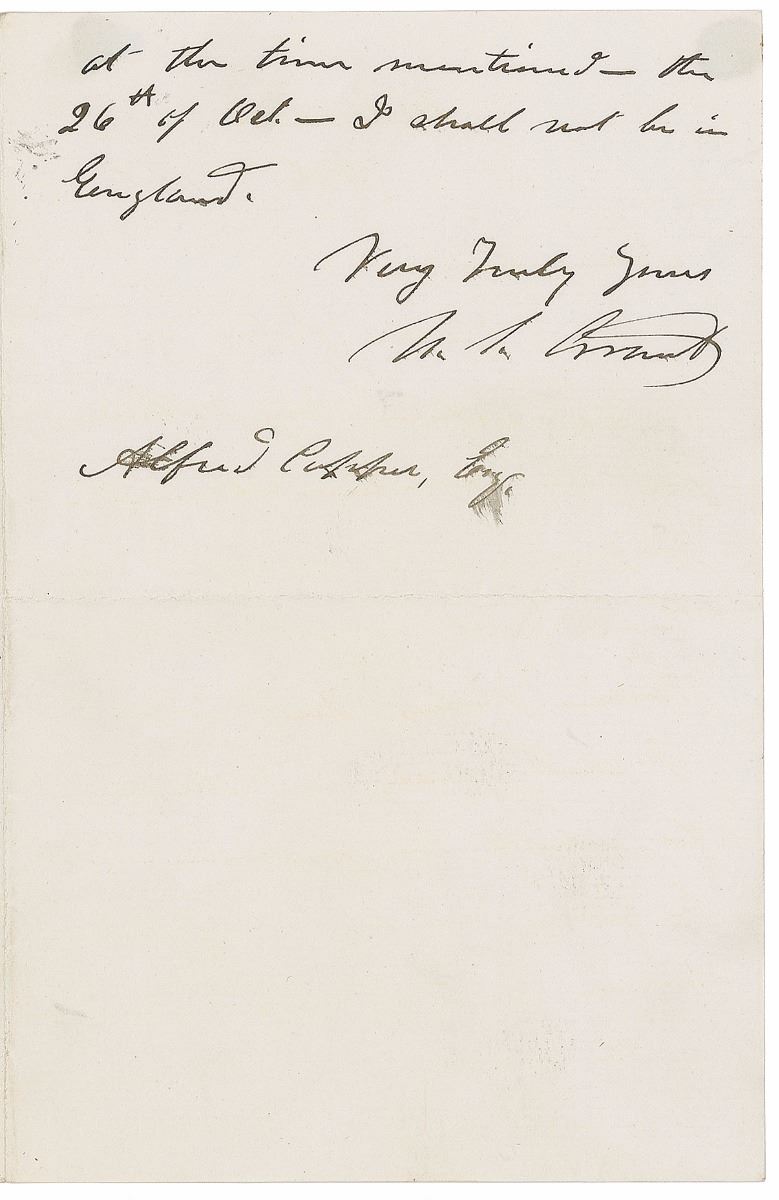 at the time mentioned — the
26th of Oct. — I shall not be in
England.
Very Truly Yours
U. S. Grant
Alfred Capper, Esq.